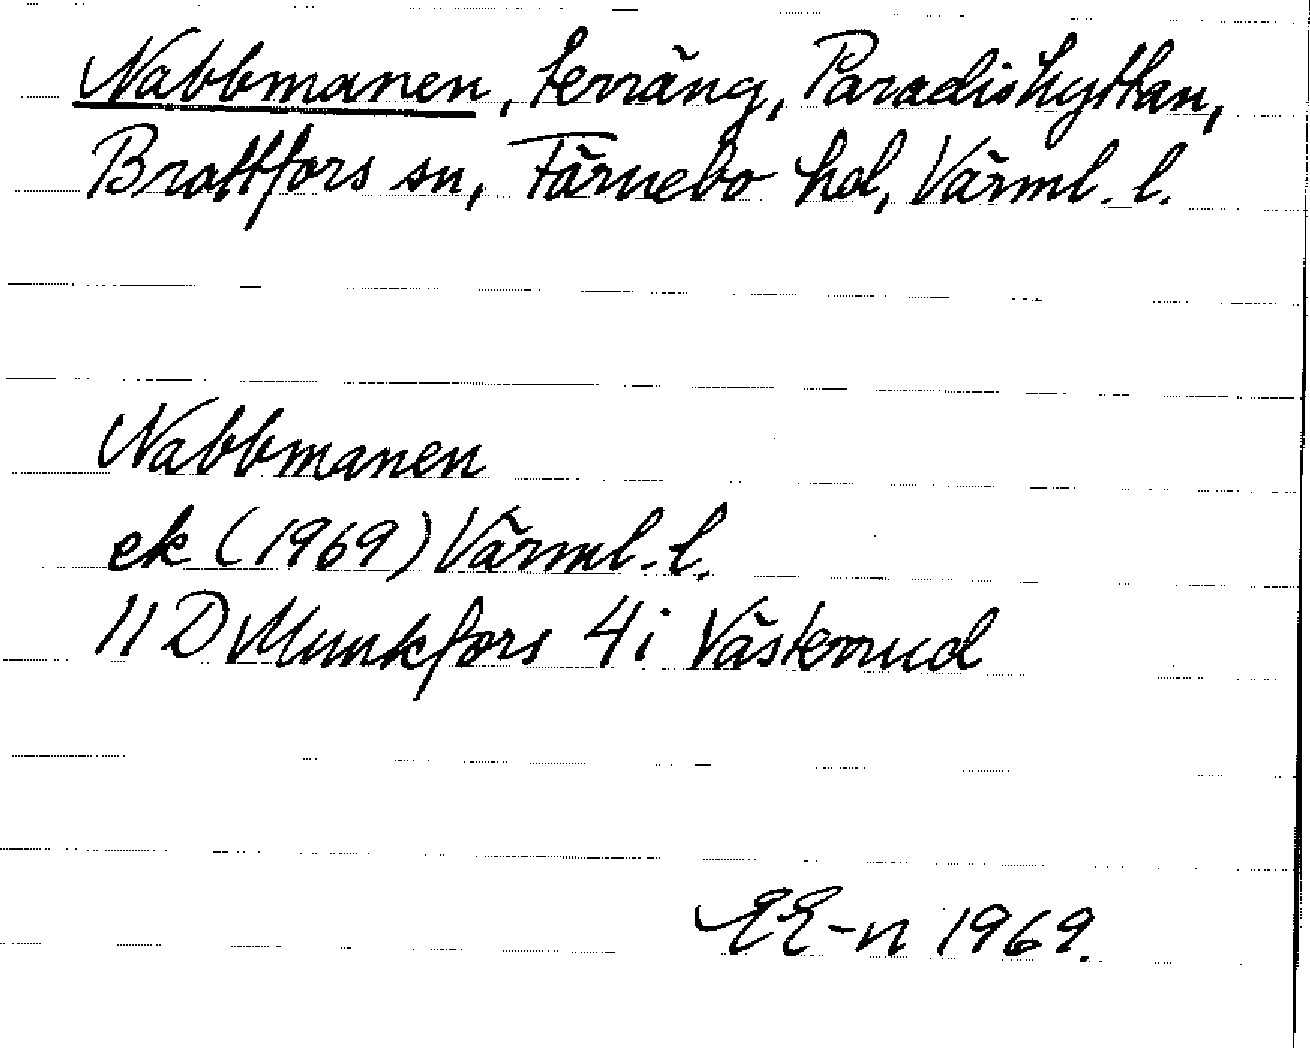 Nabbmanen, terräng, Paradishyttan,
Brattfors sn, Färnebo hd, Värml. l.
Nabbmanen
ek (1969) Värml. l.
11 D Munkfors 4i Västerrud
EE-n 1969.